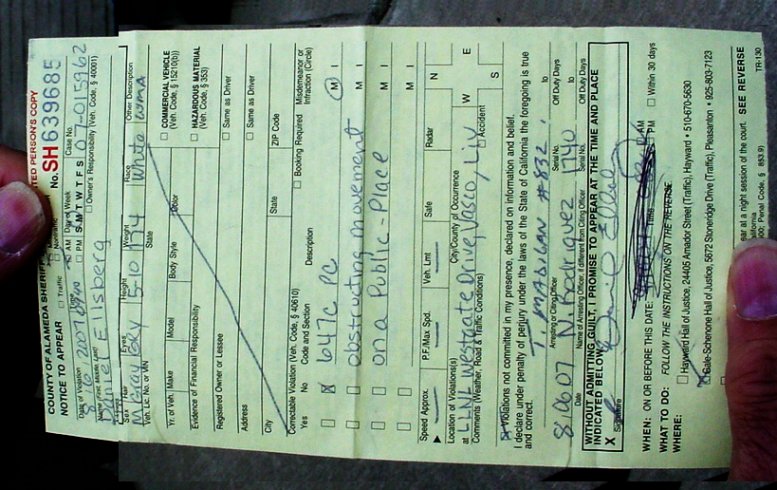 CITED PERSON'S COPY
COUNTY OF ALAMEDA SHERIFF
NOTICE TO APPEAR
☐ Traffic ☐ Nontraffic
No. SH639685
Date of Violation Time ☐ AM ☐ PM Day of Week S M T W T F S Case No.
8-10 2007 07-015962
Name (First, Middle, Last) ☐ Owner's Responsibility (Veh. Code, § 40001)
Daniel Ellsberg
Sex Hair Eyes Height Weight Race Other Description
M Gray Blu 5-10 174 White
Veh. Lic. No. or VIN State
☐ COMMERCIAL VEHICLE (Veh. Code, § 15210(b))
Yr. of Veh. Make Model Body Style Color
☐ HAZARDOUS MATERIAL (Veh. Code, § 353)
Evidence of Financial Responsibility
Registered Owner or Lessee ☐ Same as Driver
Address ☐ Same as Driver
City State ZIP Code
Correctable Violation (Veh. Code, § 40610) ☐ Booking Required Misdemeanor or Infraction (Circle)
Yes No Code and Section Description
☐ 647c PC M I
☐ ☐ obstructing movement M I
☐ ☐ on a Public-Place M I
☐ ☐ M I
Speed Approx. P.F./Max Spd. Veh. Lmt Safe Radar N
Location of Violation(s) City/County of Occurrence W E
at LLNL Westgate Drive, Vasco, Liv
Comments (Weather, Road & Traffic Conditions) ☐ Accident S
Violations not committed in my presence, declared on information and belief.
I declare under penalty of perjury under the laws of the State of California the foregoing is true
and correct.
T. MADIGAN #832 to
Arresting or Citing Officer Serial No. Off Duty Days
8/10/07 N. Rodriguez 1740 to
Date Name of Arresting Officer, if different from Citing Officer Serial No. Off Duty Days
WITHOUT ADMITTING GUILT, I PROMISE TO APPEAR AT THE TIME AND PLACE
INDICATED BELOW.
X Signature
WHEN: ON OR BEFORE THIS DATE: Time ☐ AM ☐ PM
WHAT TO DO: FOLLOW THE INSTRUCTIONS ON THE REVERSE ☐ Within 30 days
WHERE: ☐ Hayward Hall of Justice, 24405 Amador Street (Traffic), Hayward • 510-670-5630
☐ Gale-Schenone Hall of Justice, 5672 Stoneridge Drive (Traffic), Pleasanton • 925-803-7123
ear at a night session of the court.
SEE REVERSE
TR-130